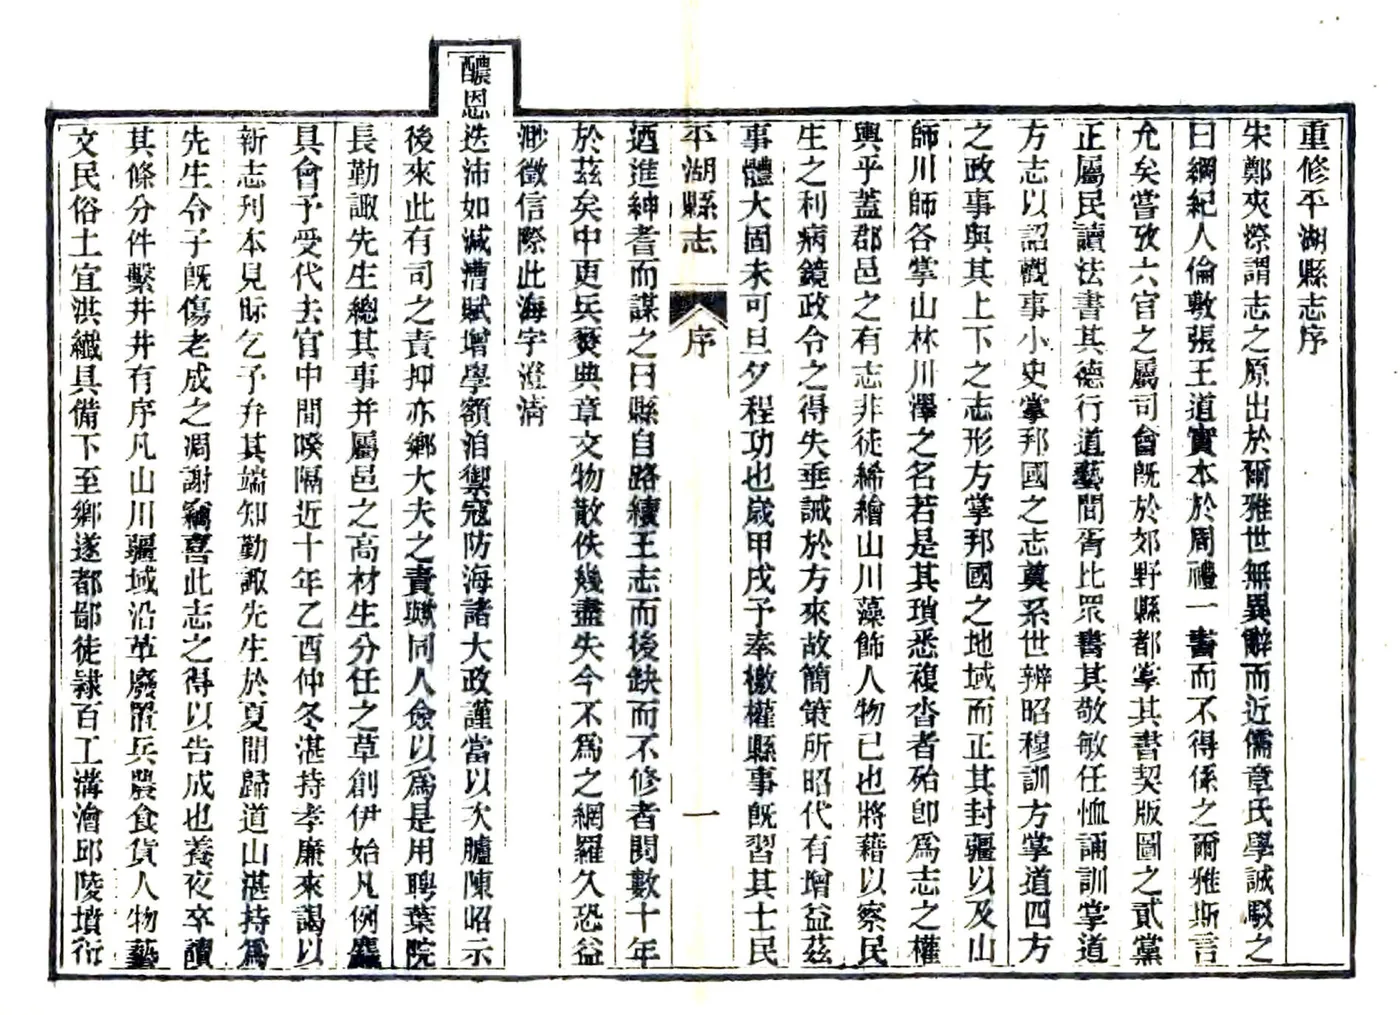 重修平湖縣志序
宋鄭夾漈謂志之原出於爾雅世無異辭而近儒章氏學誠駁之
曰綱紀人倫敷張王道實本於周禮一書而不得係之爾雅斯言
允矣嘗攷六官之屬司會旣於郊野縣都掌其書契版圖之貳黨
正屬民讀法書其德行道藝閭胥比眾書其敬敏任恤誦訓掌道
方志以詔觀事小史掌邦國之志奠系世辨昭穆訓方掌道四方
之政事與其上下之志形方掌邦國之地域而正其封疆以及山
師川師各掌山林川澤之名若是其瑣悉複沓者殆卽爲志之權
輿乎蓋郡邑之有志非徒絺繪山川藻飾人物已也將藉以察民
生之利病鏡政令之得失垂誡於方來故簡策所昭代有增益茲
事體大固未可旦夕程功也歲甲戌予奉檄權縣事旣習其士民
平湖縣志 序 一
迺進紳耆而謀之曰縣自路續王志而後缺而不修者閱數十年
於茲矣中更兵燹典章文物散佚幾盡失今不爲之網羅久恐益
渺徵信際此海宇澄淸
醲恩迭沛如減漕賦增學額洎禦寇防海諸大政謹當以次臚陳昭示
後來此有司之責抑亦鄉大夫之責歟同人僉以爲是用聘葉院
長勤諏先生總其事并屬邑之高材生分任之草創伊始凡例麤
具會予受代去官中間暌隔近十年乙酉仲冬湛持孝廉來謁以
新志刊本見眎乞予弁其端知勤諏先生於夏間歸道山湛持爲
先生令子旣傷老成之凋謝竊喜此志之得以告成也養夜卒讀
其條分件繫井井有序凡山川疆域沿革廢置兵農食貨人物藝
文民俗土宜洪纖具備下至鄉遂都鄙徒隸百工溝澮邱陵墳衍